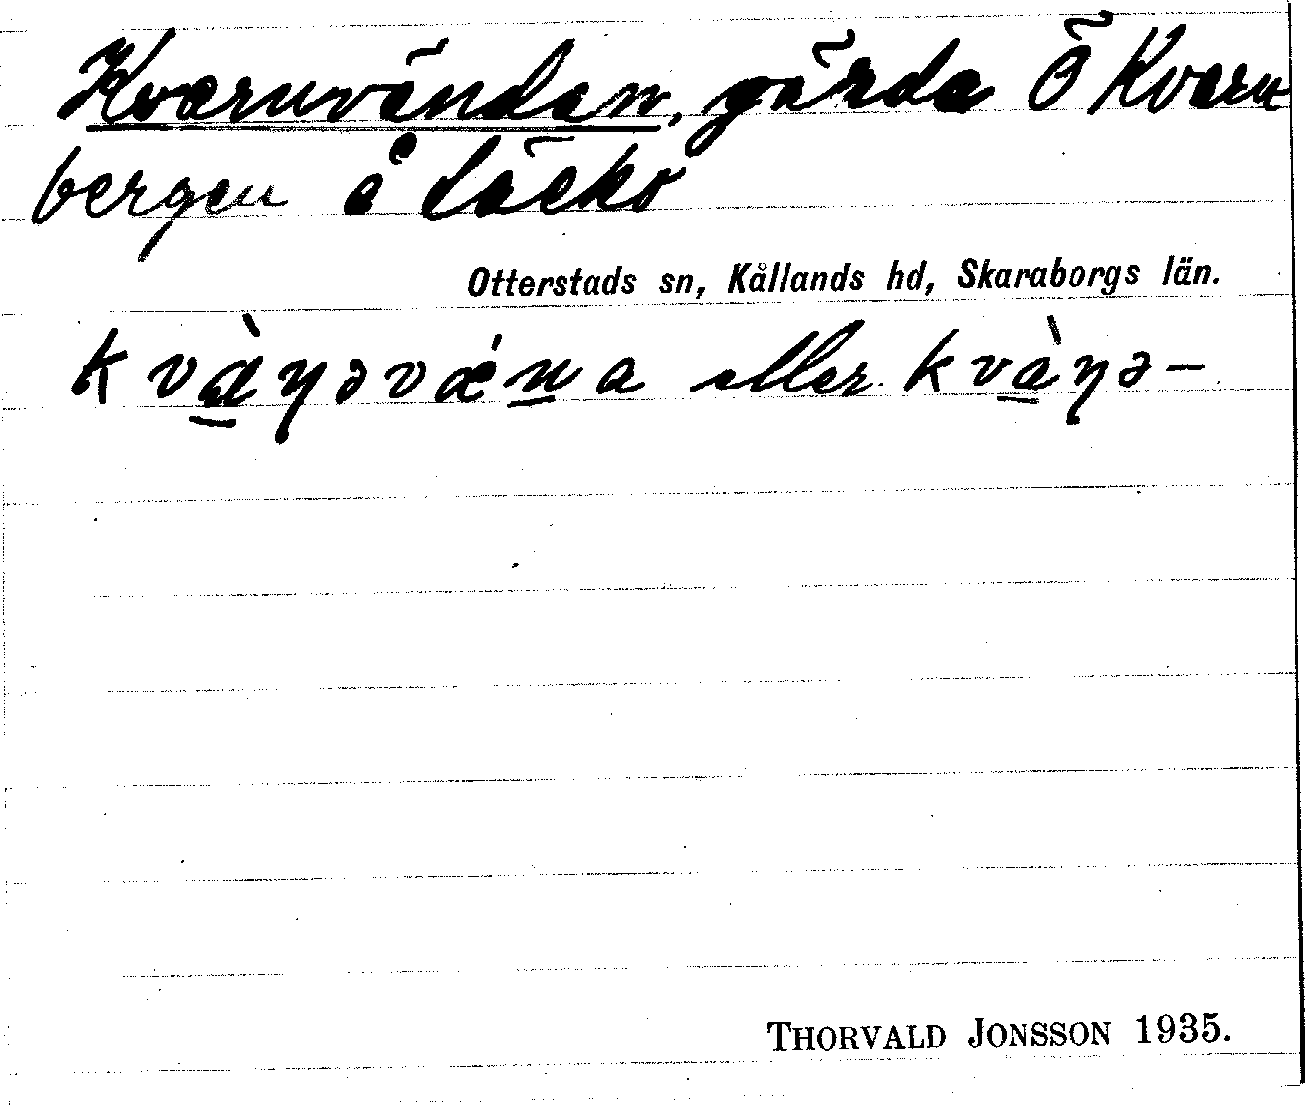 Kvarnvändan, gärda Ö Kvarn
bergen å Läckö
Otterstads sn, Kållands hd, Skaraborgs län.
kvàŋəvǽna eller kvàŋə–
THORVALD JONSSON 1935.